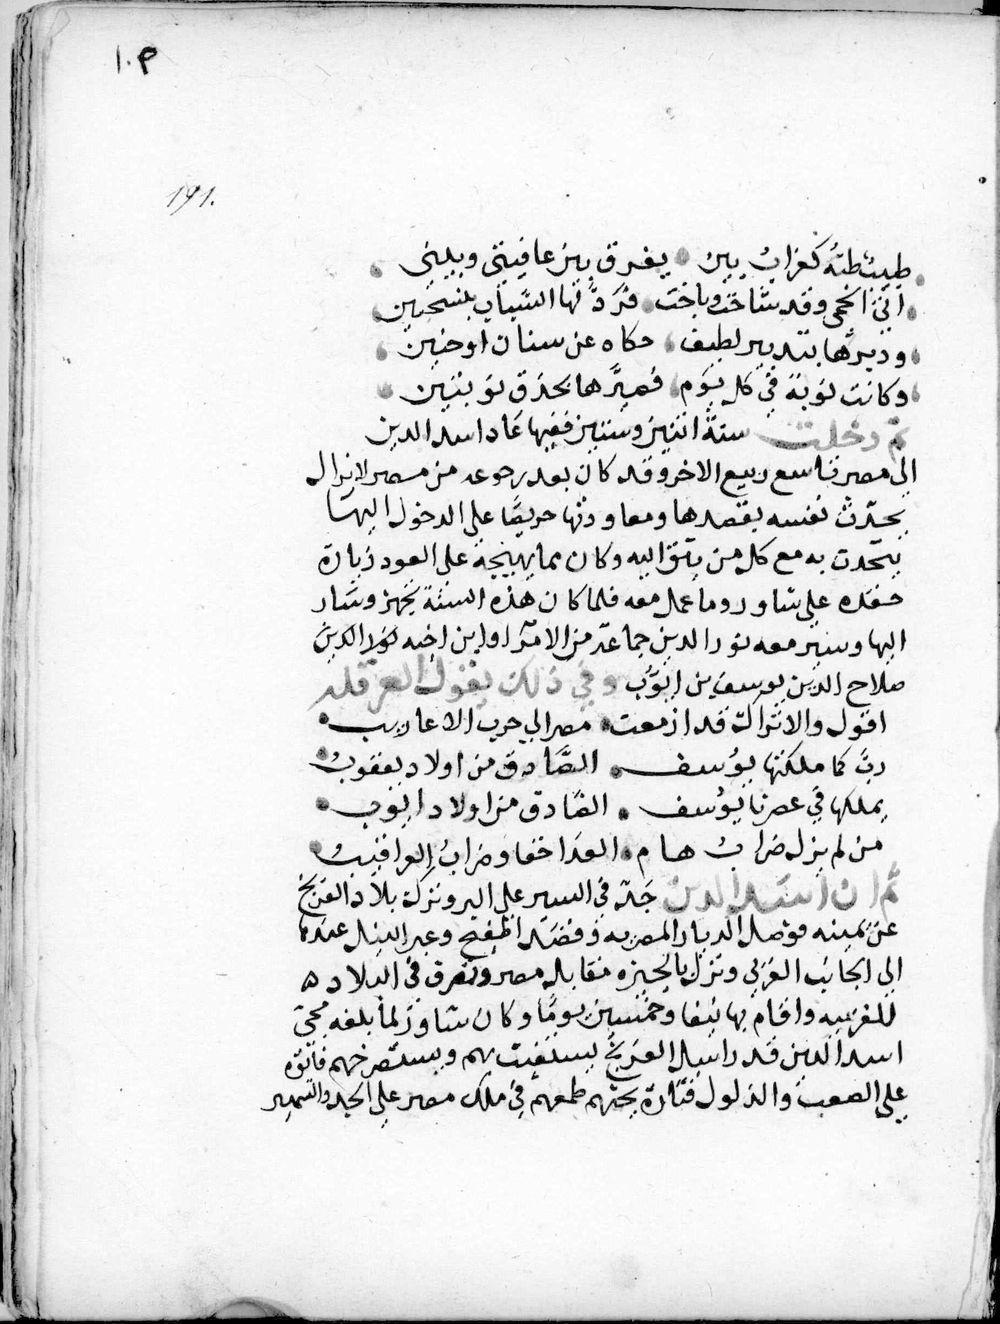 ١٠٣
191.
طبيب طبه كغراب بين يفرق بين عافيتي وبيني
اتى الحمى وقد شاخت وباخت فرد لها الشباب بنسختين
ودبرها بتدبير لطيف حكاه عن سنان او حنين
وكانت نوبة في كل يوم فصيرها بحذق نوبتين
ثم دخلت سنة اثنين وستين ففيها عاد اسد الدين
الى مصر تاسع ربيع الاخر وقد كان بعد رجوعه من مصر لا يزال
يحدث نفسه بقصدها ومعاودتها حريصا على الدخول اليها
يتحدث به مع كل من يثق اليه وكان مما يهيجه على العود زيادة
حقده على شاور وما عمل معه فلما كان هذه السنة تجهز وسار
اليها وسير معه نور الدين جماعة من الامرا وابن اخيه
صلاح الدين يوسف بن ايوب وفي ذلك يقول العرقله
اقول والاتراك قد ازمعت مصر الى حرب الاعاريب
رب كما ملكتها يوسف الصادق من اولاد يعقوب
يملكها في عصرنا يوسف الصادق من اولاد ايوب
من لم يزل ضراب هام العدا حقا وضراب العراقيب
ثم ان اسد الدين جد في السير على البر وترك بلاد الفرنج
عن يمينه فوصل الديار المصريه وقصد اطفيح وعبر النيل عندها
الى الجانب الغربي ونزل بالجيزه مقابل مصر وتصرف في البلاد ه
الغربيه واقام بها نيفا وخمسين يوما وكان شاور لما بلغه مجي
اسد الدين قد راسل الفرنج يستغيث بهم ويستصرخهم فاتوه
على الصعب والذلول فتارة يحثهم طمعهم في ملك مصر على الجد والتشمير